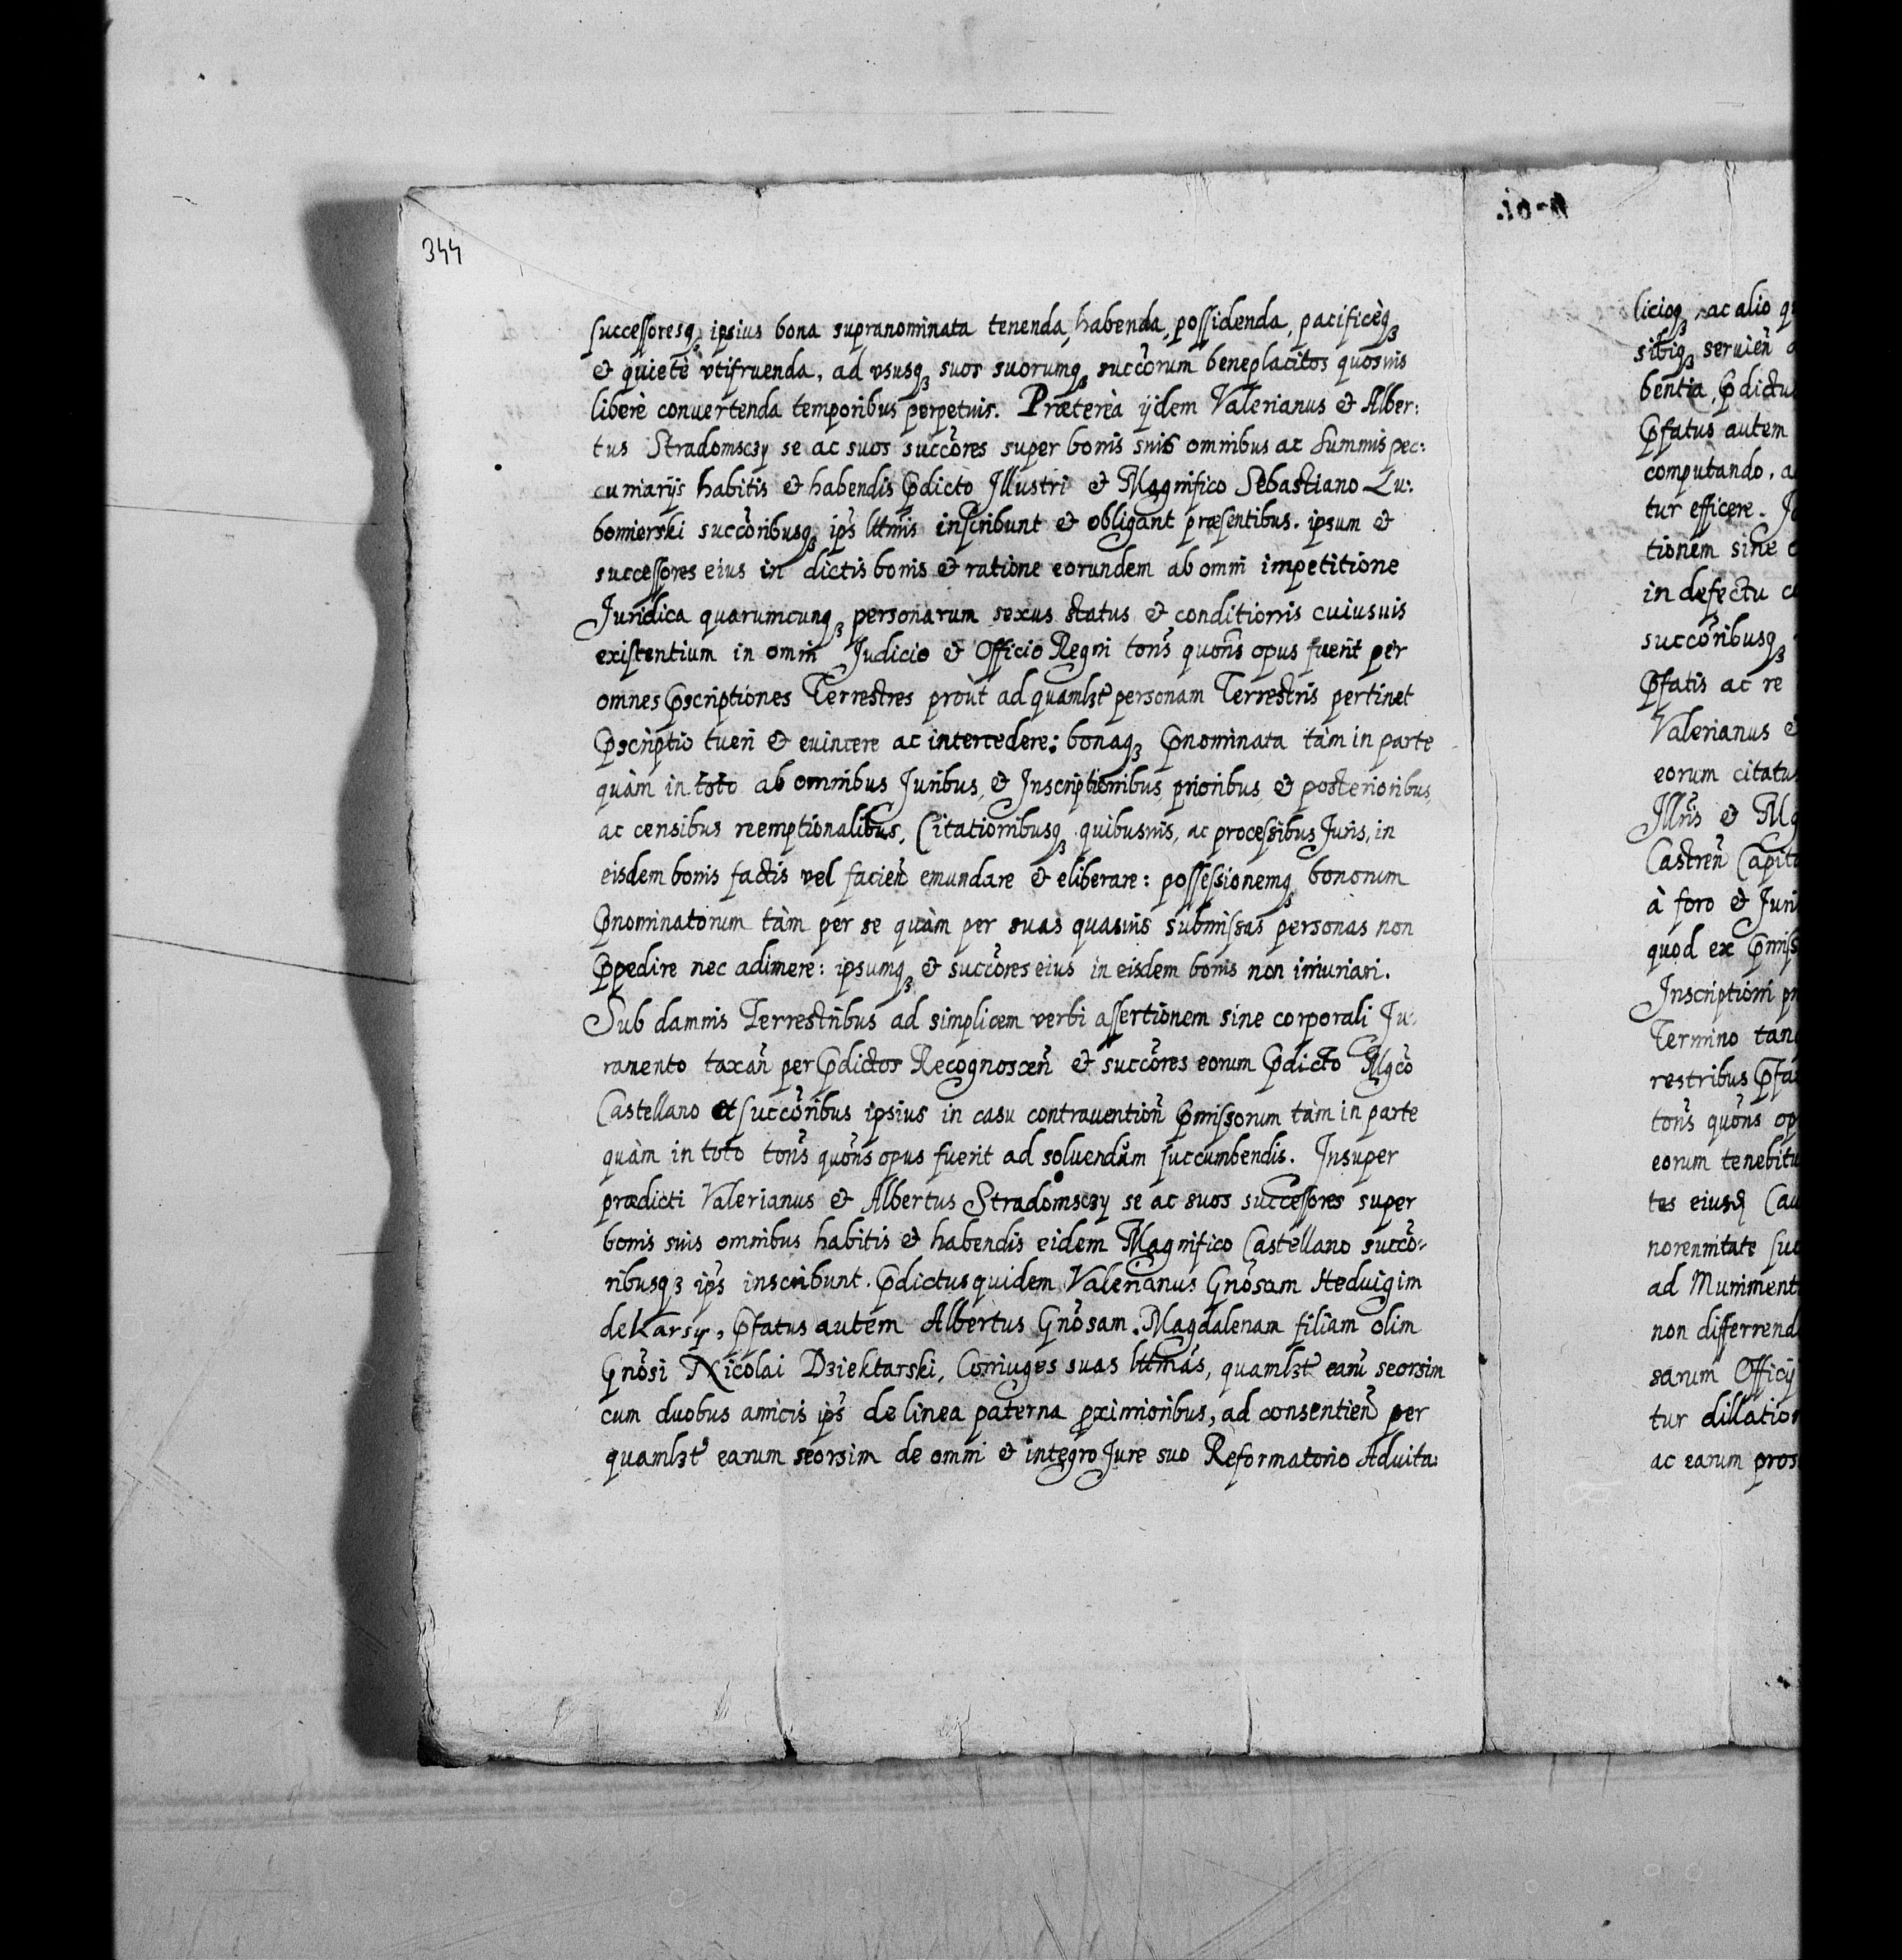 344
successoresq₃ ipsius bona supranominata tenenda, habenda, possidenda, pacificèq₃
& quietè vtifruenda, ad vsusq₃ suos suorumq₃ succ̃orum beneplacitos quosuis
liberè conuertenda temporibus perpetuis. Præterèa ijdem Valerianus & Alber:
tus Stradomsczy se ac suos succ̃ores super bonis suis omnibus ac summis pec:
cuniarijs habitis & habendis p̃dicto Illustri & Magnifico Sebastiano Lu:
bomierski succ̃oribusq₃ ip̃s lttmis inscribunt & obligant præsentibus. ipsum &
successores eius in dictis bonis & ratione eorundem ab omni impetitione
Juridica quarumcunq₃ personarum sexus status & conditionis cuiusuis
existentium in omni Judicio & Officio Regni tõns quõns opus fuerit per
omnes p̃scriptiones Terrestres prout ad quamlȝt personam Terrestris pertinet
p̃scriptio tueri & euincere ac intercedere: bonaq₃ p̃nominata tàm in parte
quàm in toto ab omnibus Juribus, & Inscriptionibus prioribus & posterioribus,
ac censibus reemptionalibus, Citationibusq₃ quibusuis, ac processibus Juris, in
eisdem bonis factis vel facień emundare & eliberare: possessionemq₃ bonorum
p̃nominatorum tàm per se quàm per suas quasuis submissas personas non
p̃pedire nec adimere: ipsumq₃ & succ̃ores eius in eisdem bonis non iniuriari.
Sub damnis Terrestribus ad simplicem verbi assertionem sine corporali Ju:
ramento taxań per p̃dictos Recognosceń & succ̃ores eorum p̃dicto Mgc̃o
Castellano et succ̃oribus ipsius in casu contrauentioń p̃missorum tàm in parte
quàm in toto tõns quõns opus fuerit ad soluendum succumbendis. Insuper
prædicti Valerianus & Albertus Stradomsczy se ac suos successores super
bonis suis omnibus habitis & habendis eidem Magnifico Castellano succ̃o:
ribusq₃ ip̃s inscribunt. p̃dictus quidem Valerianus Gnõsam Heduigim
de Karsy, p̃fatus autem Albertus Gnõsam Magdalenam filiam olim
Gnõsi Nicolai Dziektarski, Coniuges suas lttmas, quamlȝt earũ seorsim
cum duobus amicis ip̃s de linea paterna p̱ximioribus, ad consentień per
quamlȝt earum seorsim de omni & integro Jure suo Reformatorio Aduita:
licioq₃, ac alio
sibiq₃ seruień
bentia, p̃dictu
p̃fatus autem
computando, a
tur efficere. J
tionem sine
in defectu
succ̃oribusq₃
p̃fatis ac re
Valerianus &
eorum citatu
Illr̃is & Mg
Castreń Capit
à foro & Juri
quod ex p̃miss
Inscriptioni
Termino tan
restribus p̃fa
tõns quõns op
eorum tenebitu
tes eiusd̃ Ca
norennitate suc
ad Muniment
non differrend
sarum Officij
tur dillatio
ac earum pros